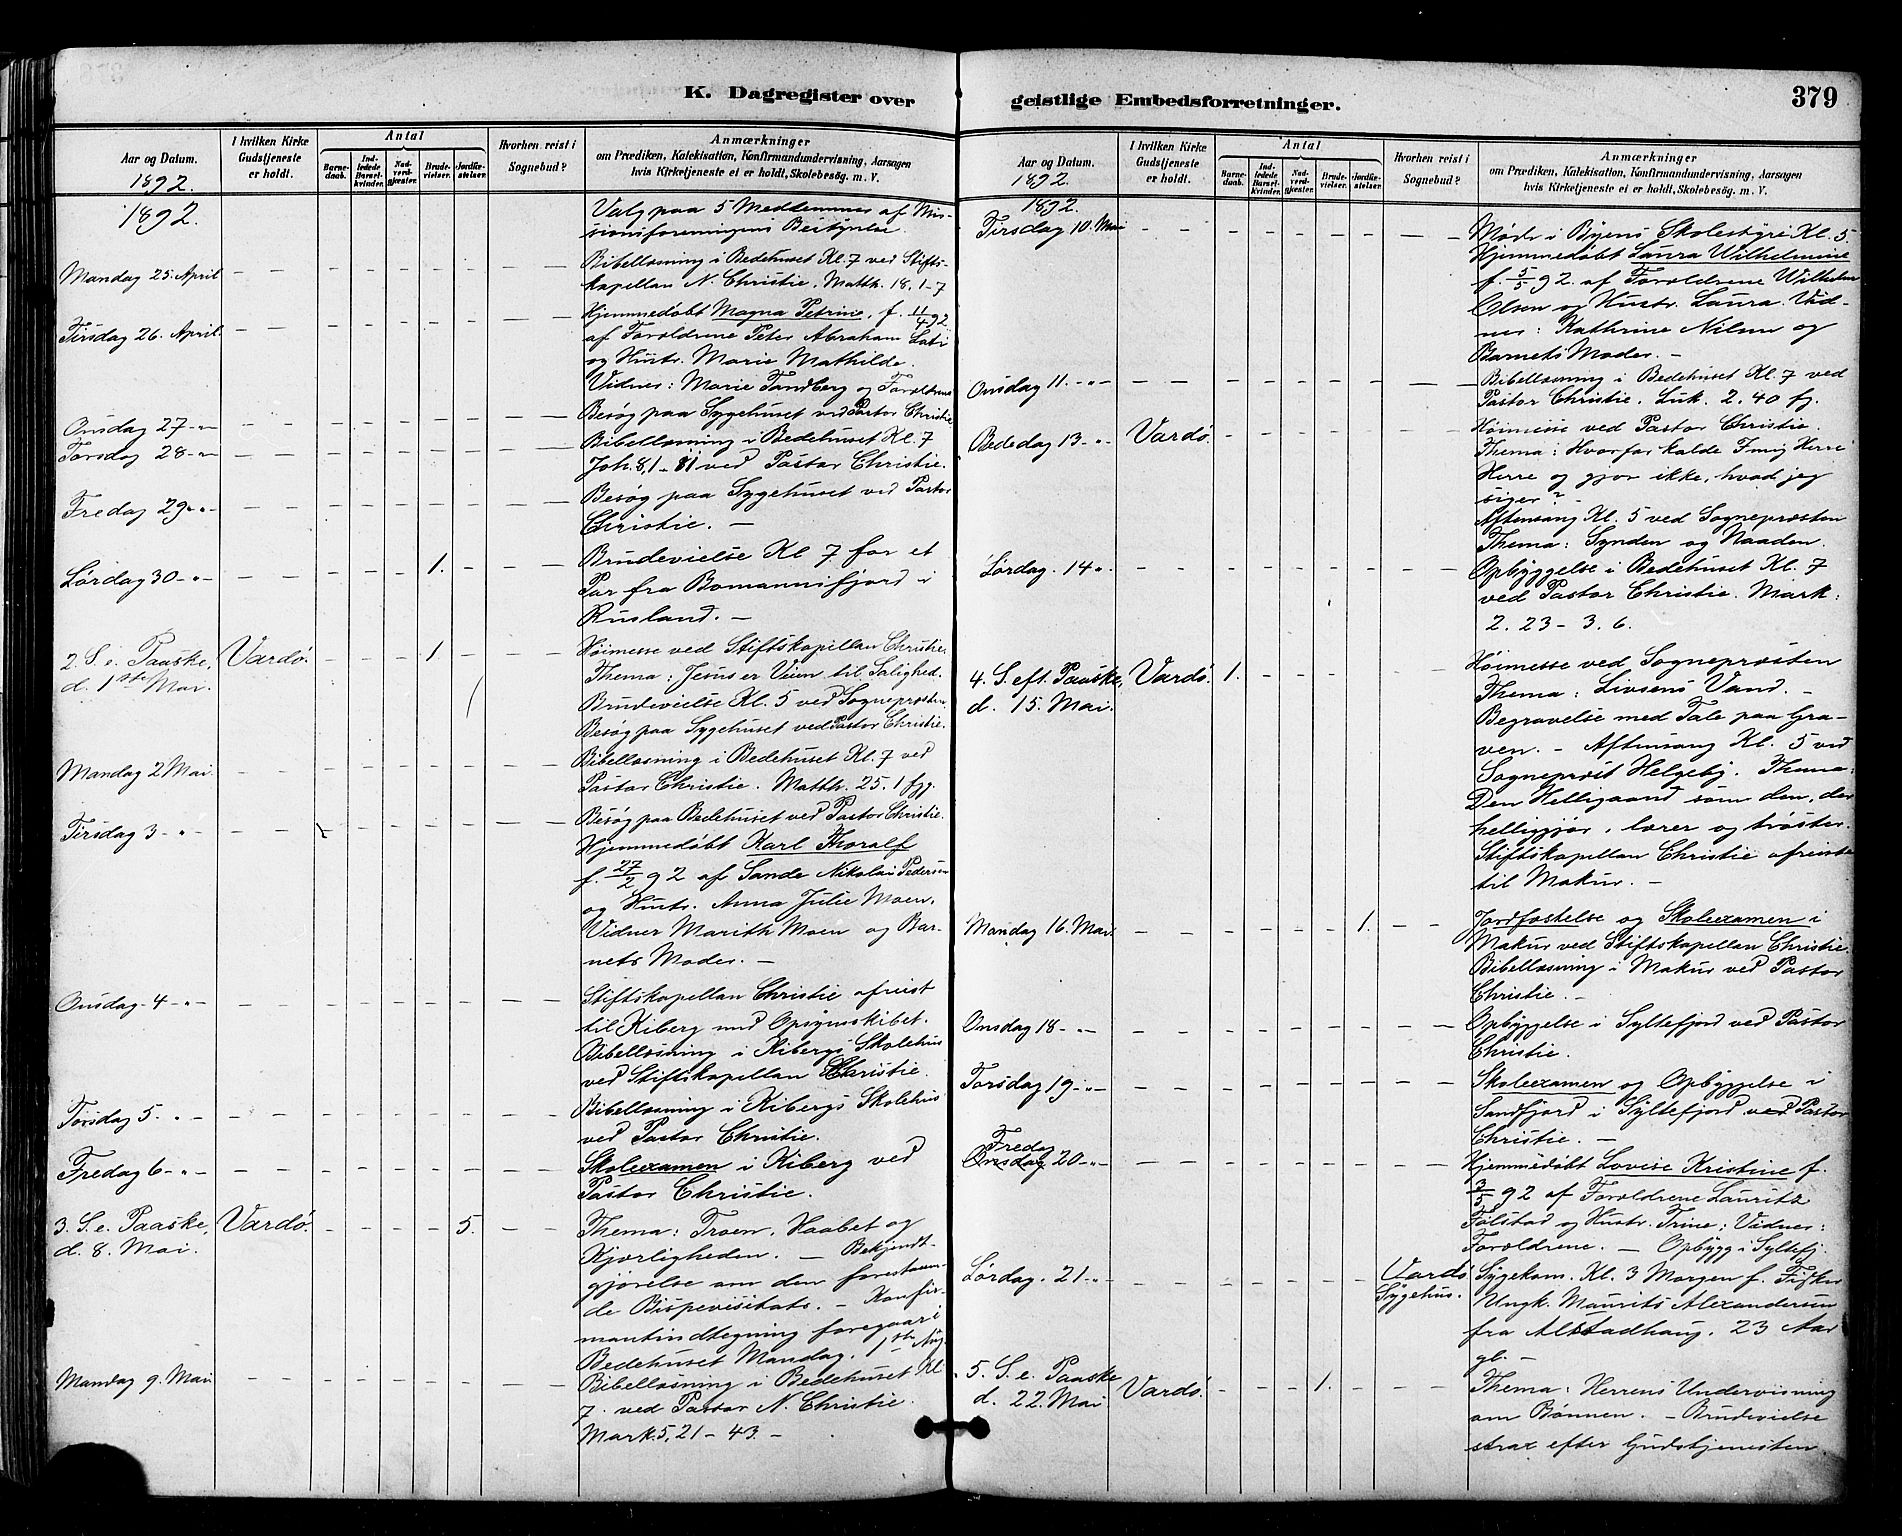 K. Dagregister over
Aar og Datum.
I hvilken Kirke Gudstjeneste er holdt.
Antal
Barnedaab.
Indledede Barselkvinder.
Nadverdgjester.
Brudevielser.
Jordfæstelser.
Hvorhen reist i Sognebud?
Anmærkninger
om Prædiken, Katekisation, Konfirmandundervisning, Aarsagen
hvis Kirketjeneste ei er holdt, Skolebesøg. m. V.
1892.
1892.
Valg paa 5 Medlemmer af Mis-
sionsforeningens Bestyrelse.
Mandag 25. April
Bibellæsning i Bedehuset Kl. 7 ved Stifts-
kapellan N. Christie, Matth. 18, 1-7
Tirsdag 26. April.
Hjemmedøbt Magna Petrine, f. 11/4 92
af Forældrene Peter Abraham
og Hustr. Marie Mathilde.
Vidner: Marie Tandberg og Forældrene
Onsdag 27 - " -
Besøg paa Sygehuset ved Pastor Christie
Torsdag 28 - " -
Bibellæsning i Bedehuset Kl. 7
Joh. 8, 1 - 11 ved Pastor Christie.
Fredag 29 - " -
Besøg paa Sygehuset ved Pastor
Christie. -
Lørdag 30 - " - 1.
Brudevielse Kl. 7 for et
Par fra Bomannsfjord i
Rusland. -
2. S. e. Paaske, Vardø. 1.
d. 1ste Mai.
Høimesse ved Stiftskapellan Christie.
Thema: Jesus er Veien til Salighed.
Brudevielse Kl. 5 ved Sognepræsten
Besøg paa Sygehuset ved Pastor Christie.
Mandag 2 Mai.
Bibellæsning i Bedehuset Kl. 7 ved
Pastor Christie. Matth. 25. 1 fgg.
Tirsdag 3 - " -
Besøg paa Bedehuset ved Pastor Christie.
Hjemmedøbt Karl Thoralf
f. 27/2 92 af Sande Nikolai Pedersen
og Hustr. Anna Julie Moen.
Vidner Marith Moen og Bar-
nets Moder. -
Onsdag 4 - " -
Stiftskapellan Christie afreist
til Kiberg med Opsynsskibet.
Bibellæsning i Kibergs Skolehus
ved Stiftskapellan Christie.
Torsdag 5. - " -
Bibellæsning i Kibergs Skolehus
ved Pastor Christie.
Fredag 6 - " -
Skoleexamen i Kiberg ved
Pastor Christie.
3. S. e. Paaske, Vardø. 5.
d. 8. Mai.
Thema: Troen, Haabet og
Kjærligheden. - Bekjendt-
gjørelse om den forestaaen-
de Bispevisitats. - Konfir-
mantindtegning foregaar i
Bedehuset Mandag. 1ste Aug.
Mandag 9. Mai
Bibellæsning i Bedehuset Kl.
7. ved Pastor N. Christie.
Mark. 5, 21 - 43. -
geistlige Embedsforretninger.
379
Aar og Datum.
I hvilken Kirke Gudstjeneste er holdt.
Antal
Barnedaab.
Indledede Barselkvinder.
Nadverdgjester.
Brudevielser.
Jordfæstelser.
Hvorhen reist i Sognebud?
Anmærkninger
om Prædiken, Katekisation, Konfirmandundervisning, Aarsagen
hvis Kirketjeneste ei er holdt, Skolebesøg. m. V.
1892.
1892.
Tirsdag 10. Mai
Møde i Byens Skolestyre Kl. 5.
Hjemmedøbt Laura Wilhelmine
f. 5/5 92. af Forældrene Wilhelm
Olsen og Hustr. Laura. Vid-
ner: Kathrine Nilsen og
Barnets Moder. -
Onsdag 11. - " -
Bibellæsning i Bedehuset Kl. 7 ved
Pastor Christie. Luk. 2. 40 fg.
Bededag 13 - " - Vardø.
Høimesse ved Pastor Christie.
Thema: Hvorfor kalde I mig Herre
Herre og gjør ikke, hvad jeg
siger?
Aftensang Kl. 5 ved Sognepræsten
Thema: Synden og Naaden.
Lørdag. 14 "
Opbyggelse i Bedehuset Kl. 7
ved Pastor Christie. Mark:
2. 23 - 3. 6.
4. S. eft. Paaske, Vardø. 1.
d. 15. Mai.
Høimesse ved Sognepræsten
Thema: Livsens Vand. -
Begravelse med Tale paa Gra-
ven. - Aftensang Kl. 5 ved
Sognepræst Helgeby. Thema:
Den Helligaand som den, der
helliggjør, lærer og trøster.
Stiftskapellan Christie afreiste
til Makur. -
Mandag 16. Mai. 1.
Jordfæstelse og Skoleexamen i
Makur ved Stiftskapellan Christie.
Bibellæsning i Makur ved Pastor
Christie. -
Onsdag 18 - " -
Opbyggelse i Syltefjord ved Pastor
Christie.
Torsdag 19 - " -
Skoleexamen og Opbyggelse i
Sandfjord i Syltefjord ved Pastor
Christie. -
Fredag
Onsdag 20 - " -
Hjemmedøbt Lovise Kristine f.
3/5 92 af Forældrene Lauritz
Følstad og Hustr. Trine; Vidner:
Forældrene. - Opbygg i Syltefj.
Lørdag. 21 - " - Vardø
Sygehus.
Sygekom. Kl. 3 Morgen f. Fisker
Ungk. Maurits Alexandersen
fra Alstadhaug. 23 Aar
gl. -
5. S. e. Paaske
d. 22. Mai Vardø. 1.
Thema: Herrens Undervisning
om Bønnen. - Brudevielse
strax efter Gudstjenesten.